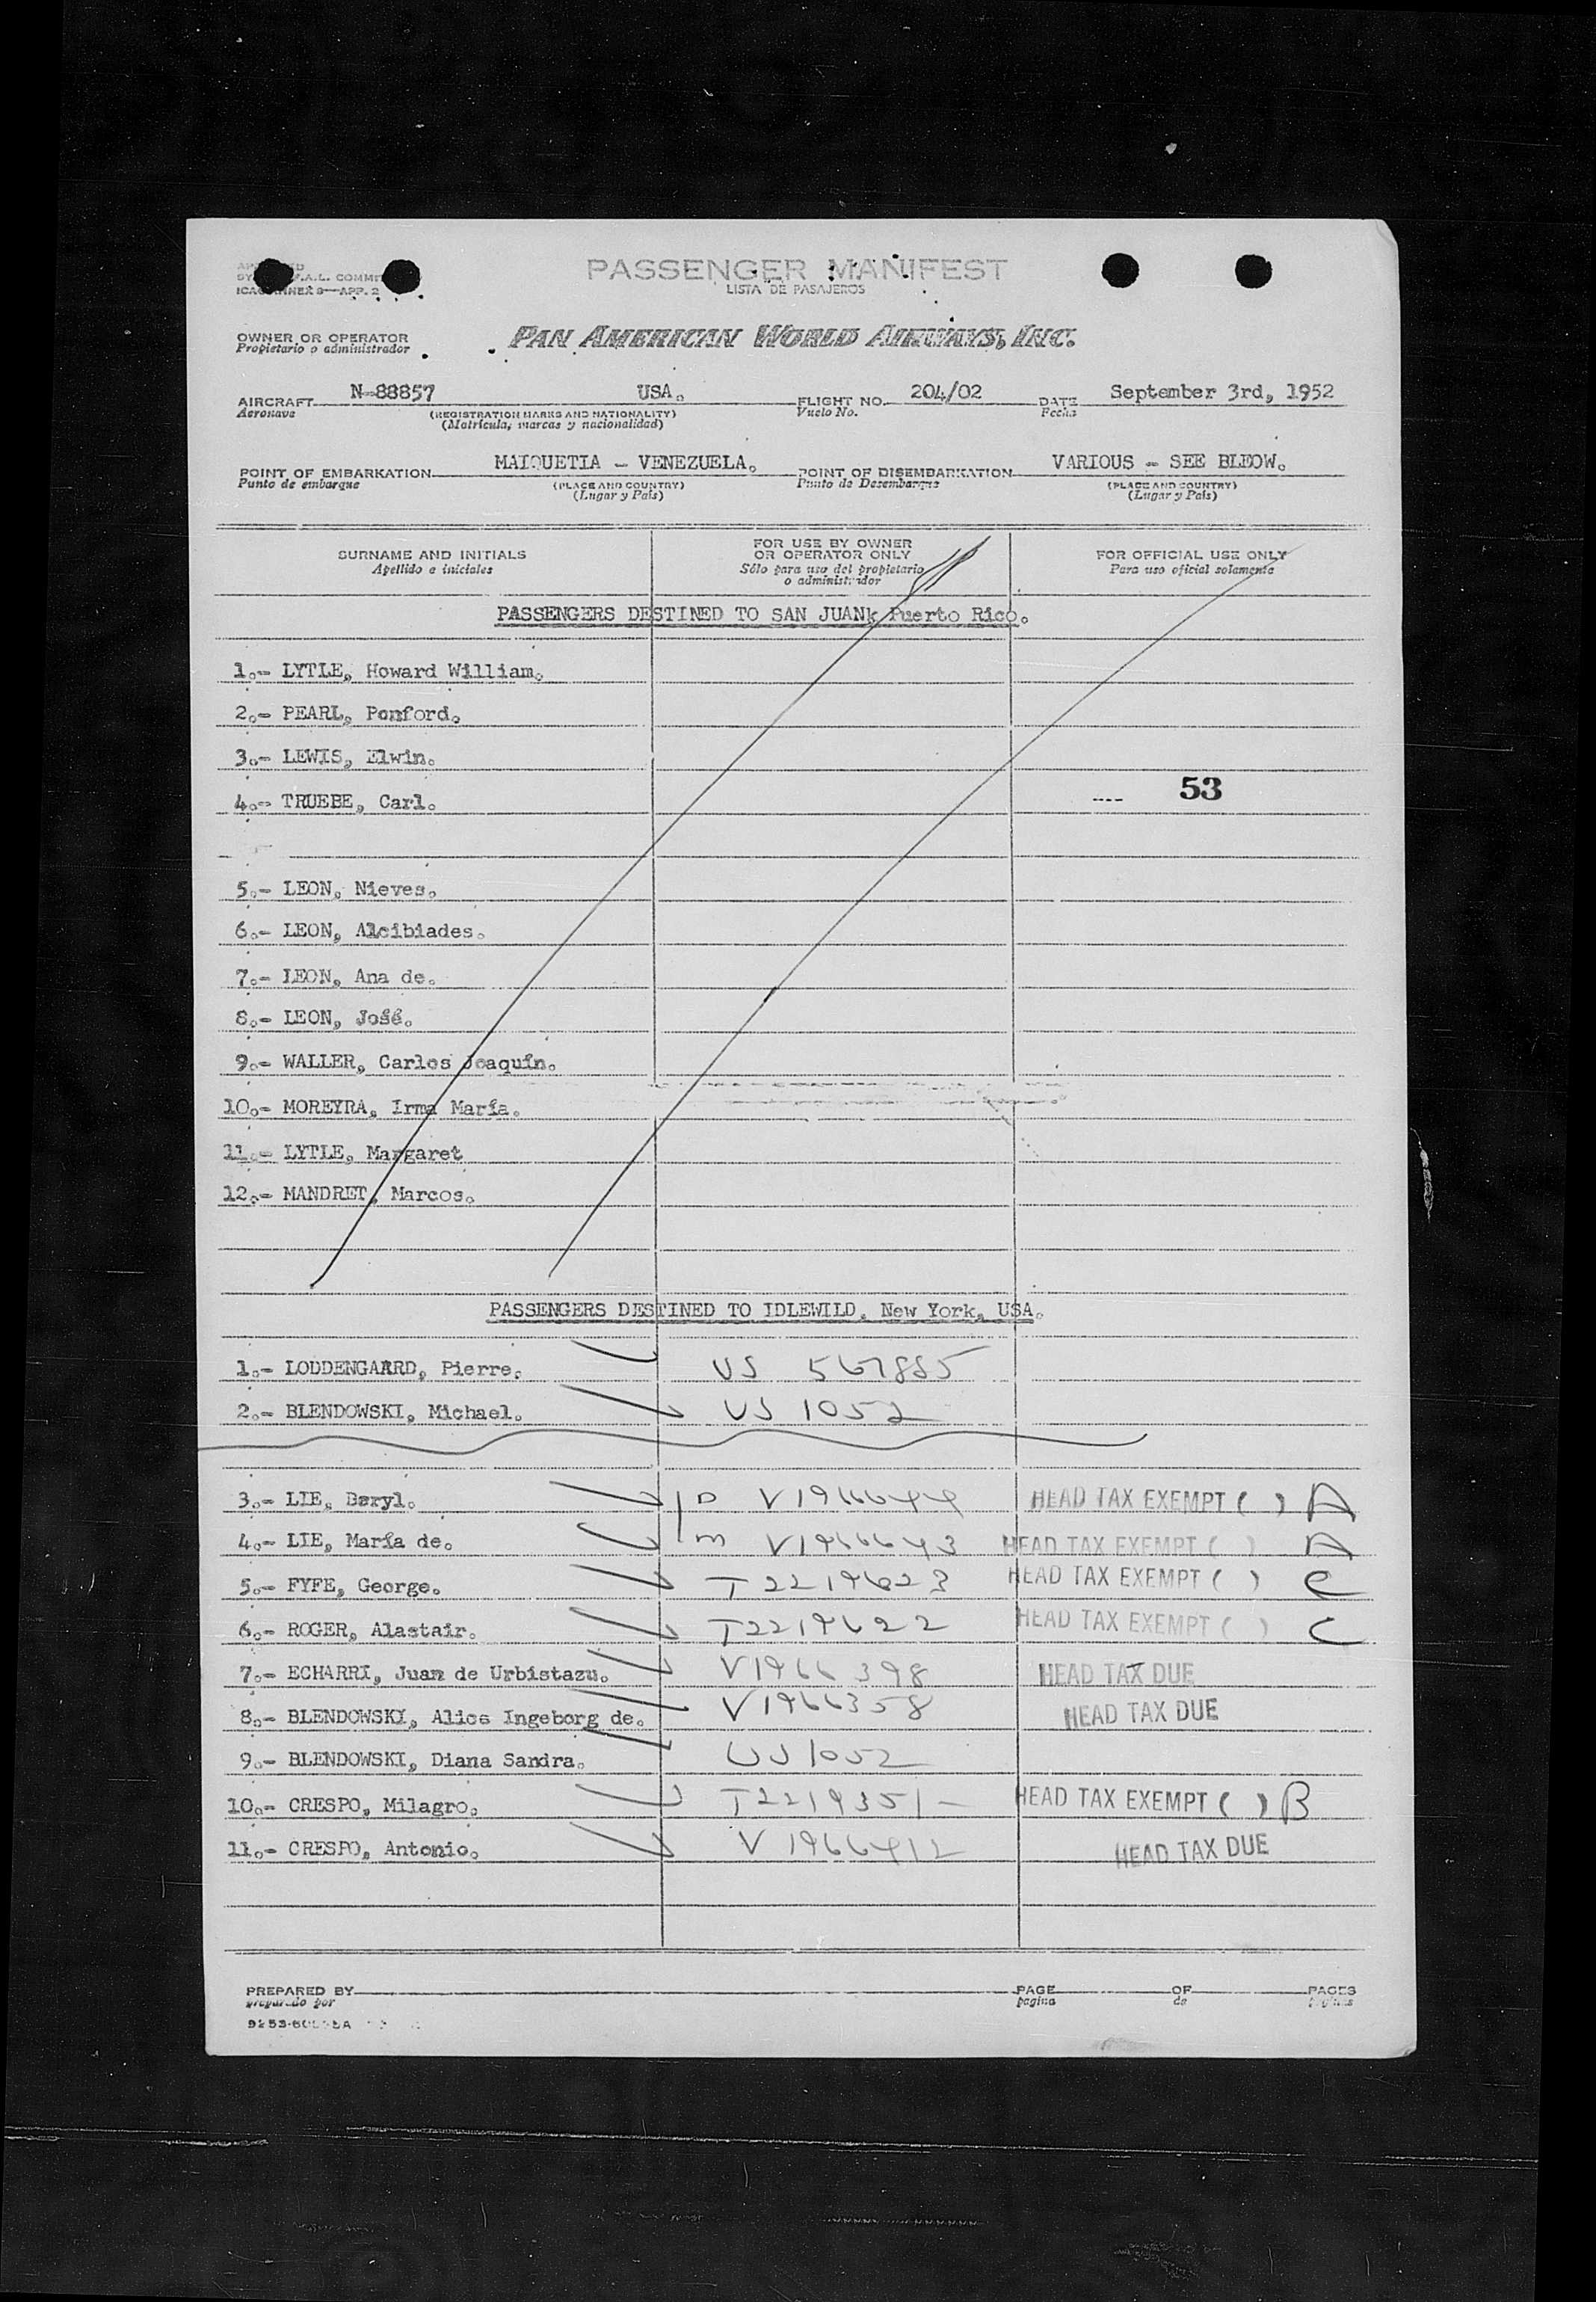 PASSENGER MANIFEST
LISTA DE PASAJEROS
F.A.L.
ICAO ANNEX 9—APP. 2
OWNER OR OPERATOR PAN AMERICAN WORLD AIRWAYS, INC.
Propietario o administrador
AIRCRAFT N-88857 USA. FLIGHT NO. 204/02 DATE September 3rd, 1952
Aeronave (REGISTRATION MARKS AND NATIONALITY) Vuelo No. Fecha
(Matrícula, marcas y nacionalidad)
POINT OF EMBARKATION MAIQUETIA - VENEZUELA. POINT OF DISEMBARKATION VARIOUS - SEE BLEOW.
Punto de embarque (PLACE AND COUNTRY) Punto de Desembarque (PLACE AND COUNTRY)
(Lugar y País) (Lugar y País)
SURNAME AND INITIALS FOR USE BY OWNER OR OPERATOR ONLY FOR OFFICIAL USE ONLY
Apellido e iniciales Sólo para uso del propietario o administrador Para uso oficial solamente
PASSENGERS DESTINED TO SAN JUANk Puerto Rico.
1.- LYTLE, Howard William.
2.- PEARL, Ponford.
3.- LEWIS, Elwin.
4.- TRUEBE, Carl. ---- 53
5.- LEON, Nieves.
6.- LEON, Alcibiades.
7.- LEON, Ana de.
8.- LEON, José.
9.- WALLER, Carlos Joaquín.
10.- MOREYRA, Irma María.
11.- LYTLE, Margaret
12.- MANDRET, Marcos.
PASSENGERS DESTINED TO IDLEWILD, New York, USA.
1.- LODDENGAARD, Pierre. US 567885
2.- BLENDOWSKI, Michael. US 1052
3.- LIE, Beryl. D V1966644 HEAD TAX EXEMPT ( ) A
4.- LIE, María de. m V1966643 HEAD TAX EXEMPT ( ) A
5.- FYFE, George. T2219623 HEAD TAX EXEMPT ( ) C
6.- ROGER, Alastair. T2219622 HEAD TAX EXEMPT ( ) C
7.- ECHARRI, Juan de Urbistazu. V1966398 HEAD TAX DUE
8.- BLENDOWSKI, Alice Ingeborg de. V1966358 HEAD TAX DUE
9.- BLENDOWSKI, Diana Sandra. US 1052
10.- CRESPO, Milagro. T2219351- HEAD TAX EXEMPT ( ) B
11.- CRESPO, Antonio. V 1966412 HEAD TAX DUE
PREPARED BY PAGE OF PAGES
preparado por pagina de paginas